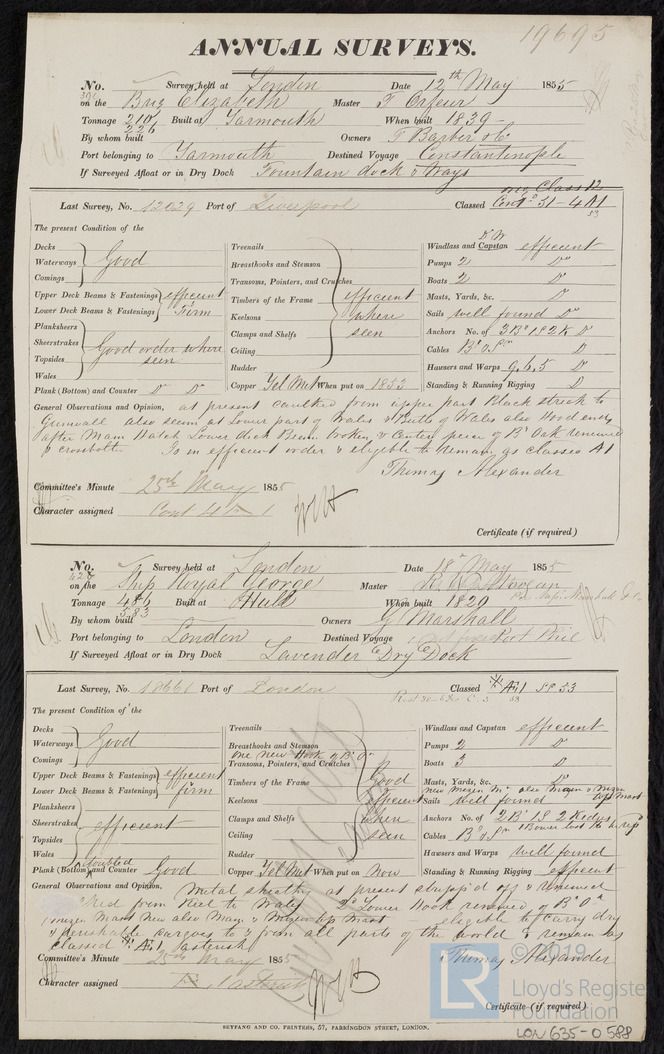 19695
ANNUAL SURVEYS.
No. 396 Survey held at London Date 12th May 1855
on the Brig Elizabeth Master T Orfeur
Tonnage 210 226 Built at Yarmouth When built 1839
By whom built Owners T Barber & Co
Port belonging to Yarmouth Destined Voyage Constantinople
If Surveyed Afloat or in Dry Dock Fountain dock & Ways
Last Survey, No. 12029 Port of Liverpool Classed Contd 51 - 4 A1
53
The present Condition of the
Decks
Waterways
Comings
Good
Upper Deck Beams & Fastenings
Lower Deck Beams & Fastenings
efficient
Firm
Planksheers
Sheerstrakes
Topsides
Wales
Good order where
seen
Plank (Bottom) and Counter Do Do
Treenails
Breasthooks and Stemson
Transoms, Pointers, and Crutches
Timbers of the Frame
Keelsons
Clamps and Shelfs
Ceiling
Rudder
efficient
where
seen
Copper Yel Met When put on 1853
Windlass and Capstan efficient
Pumps 2 Do
Boats 2 Do
Masts, Yards, &c. Do
Sails well found Do
Anchors No. of 3 B 1 S 2 K Do
Cables Do
Hawsers and Warps 9. 6. 5 Do
Standing & Running Rigging Do
General Observations and Opinion, at present caulked from upper part Black streak to
Gunwall also seam at Lower part of Wales & Butts of Wales also Hood ends
after Main Hatch Lower deck Beam broken & Center piece of Bt Oak renewed
& crossbolted Is in efficient order & eligible to remain as classed A1
Thomas Alexander
Committee's Minute 25th May 1855
Character assigned Cont 4 1
Certificate (if required)
No. 426 Survey held at London Date 18th May 1855
on the Ship Royal George Master
Tonnage 486 583 Built at Hull When built 1820
By whom built Owners G Marshall
Port belonging to London Destined Voyage Port Phil
If Surveyed Afloat or in Dry Dock Lavender Dry Dock
Last Survey, No. 18661 Port of London Classed Æ1 SS 53
53
The present Condition of the
Decks
Waterways
Comings
Good
Upper Deck Beams & Fastenings
Lower Deck Beams & Fastenings
efficient
firm
Planksheers
Sheerstrakes
Topsides
Wales
efficient
doubled
Plank (Bottom) and Counter Good
Treenails
Breasthooks and Stemson
one new Hook
Transoms, Pointers, and Crutches
Timbers of the Frame
Keelsons
Clamps and Shelfs
Ceiling
Rudder
Good
efficient
when
seen
Copper Yel Met When put on Now
Windlass and Capstan efficient
Pumps 2 Do
Boats 3 Do
Masts, Yards, &c. Do
new mizen M. also Main & Mizen
top Mast
Sails well found
Anchors No. of 2 B 1 S 2 Kedges
Cables
Hawsers and Warps Well found
Standing & Running Rigging efficient
General Observations and Opinion, Metal sheathg at present stripp'd off & renewed
from Keel to Wales Lower Hook renewed of
mizen Mast New also Main & Mizen top Mast — eligible to carry dry
& perishable cargoes to & from all parts of the world & remain as
classed Æ1 asterisk
Thomas Alexander
Committee's Minute 25th May 1855
Character assigned
Certificate (if required)
SEYFANG AND CO. PRINTERS, 57, FARRINGDON STREET, LONDON.
© 2019
LR
Lloyd's Register
Foundation
LON 635-0588